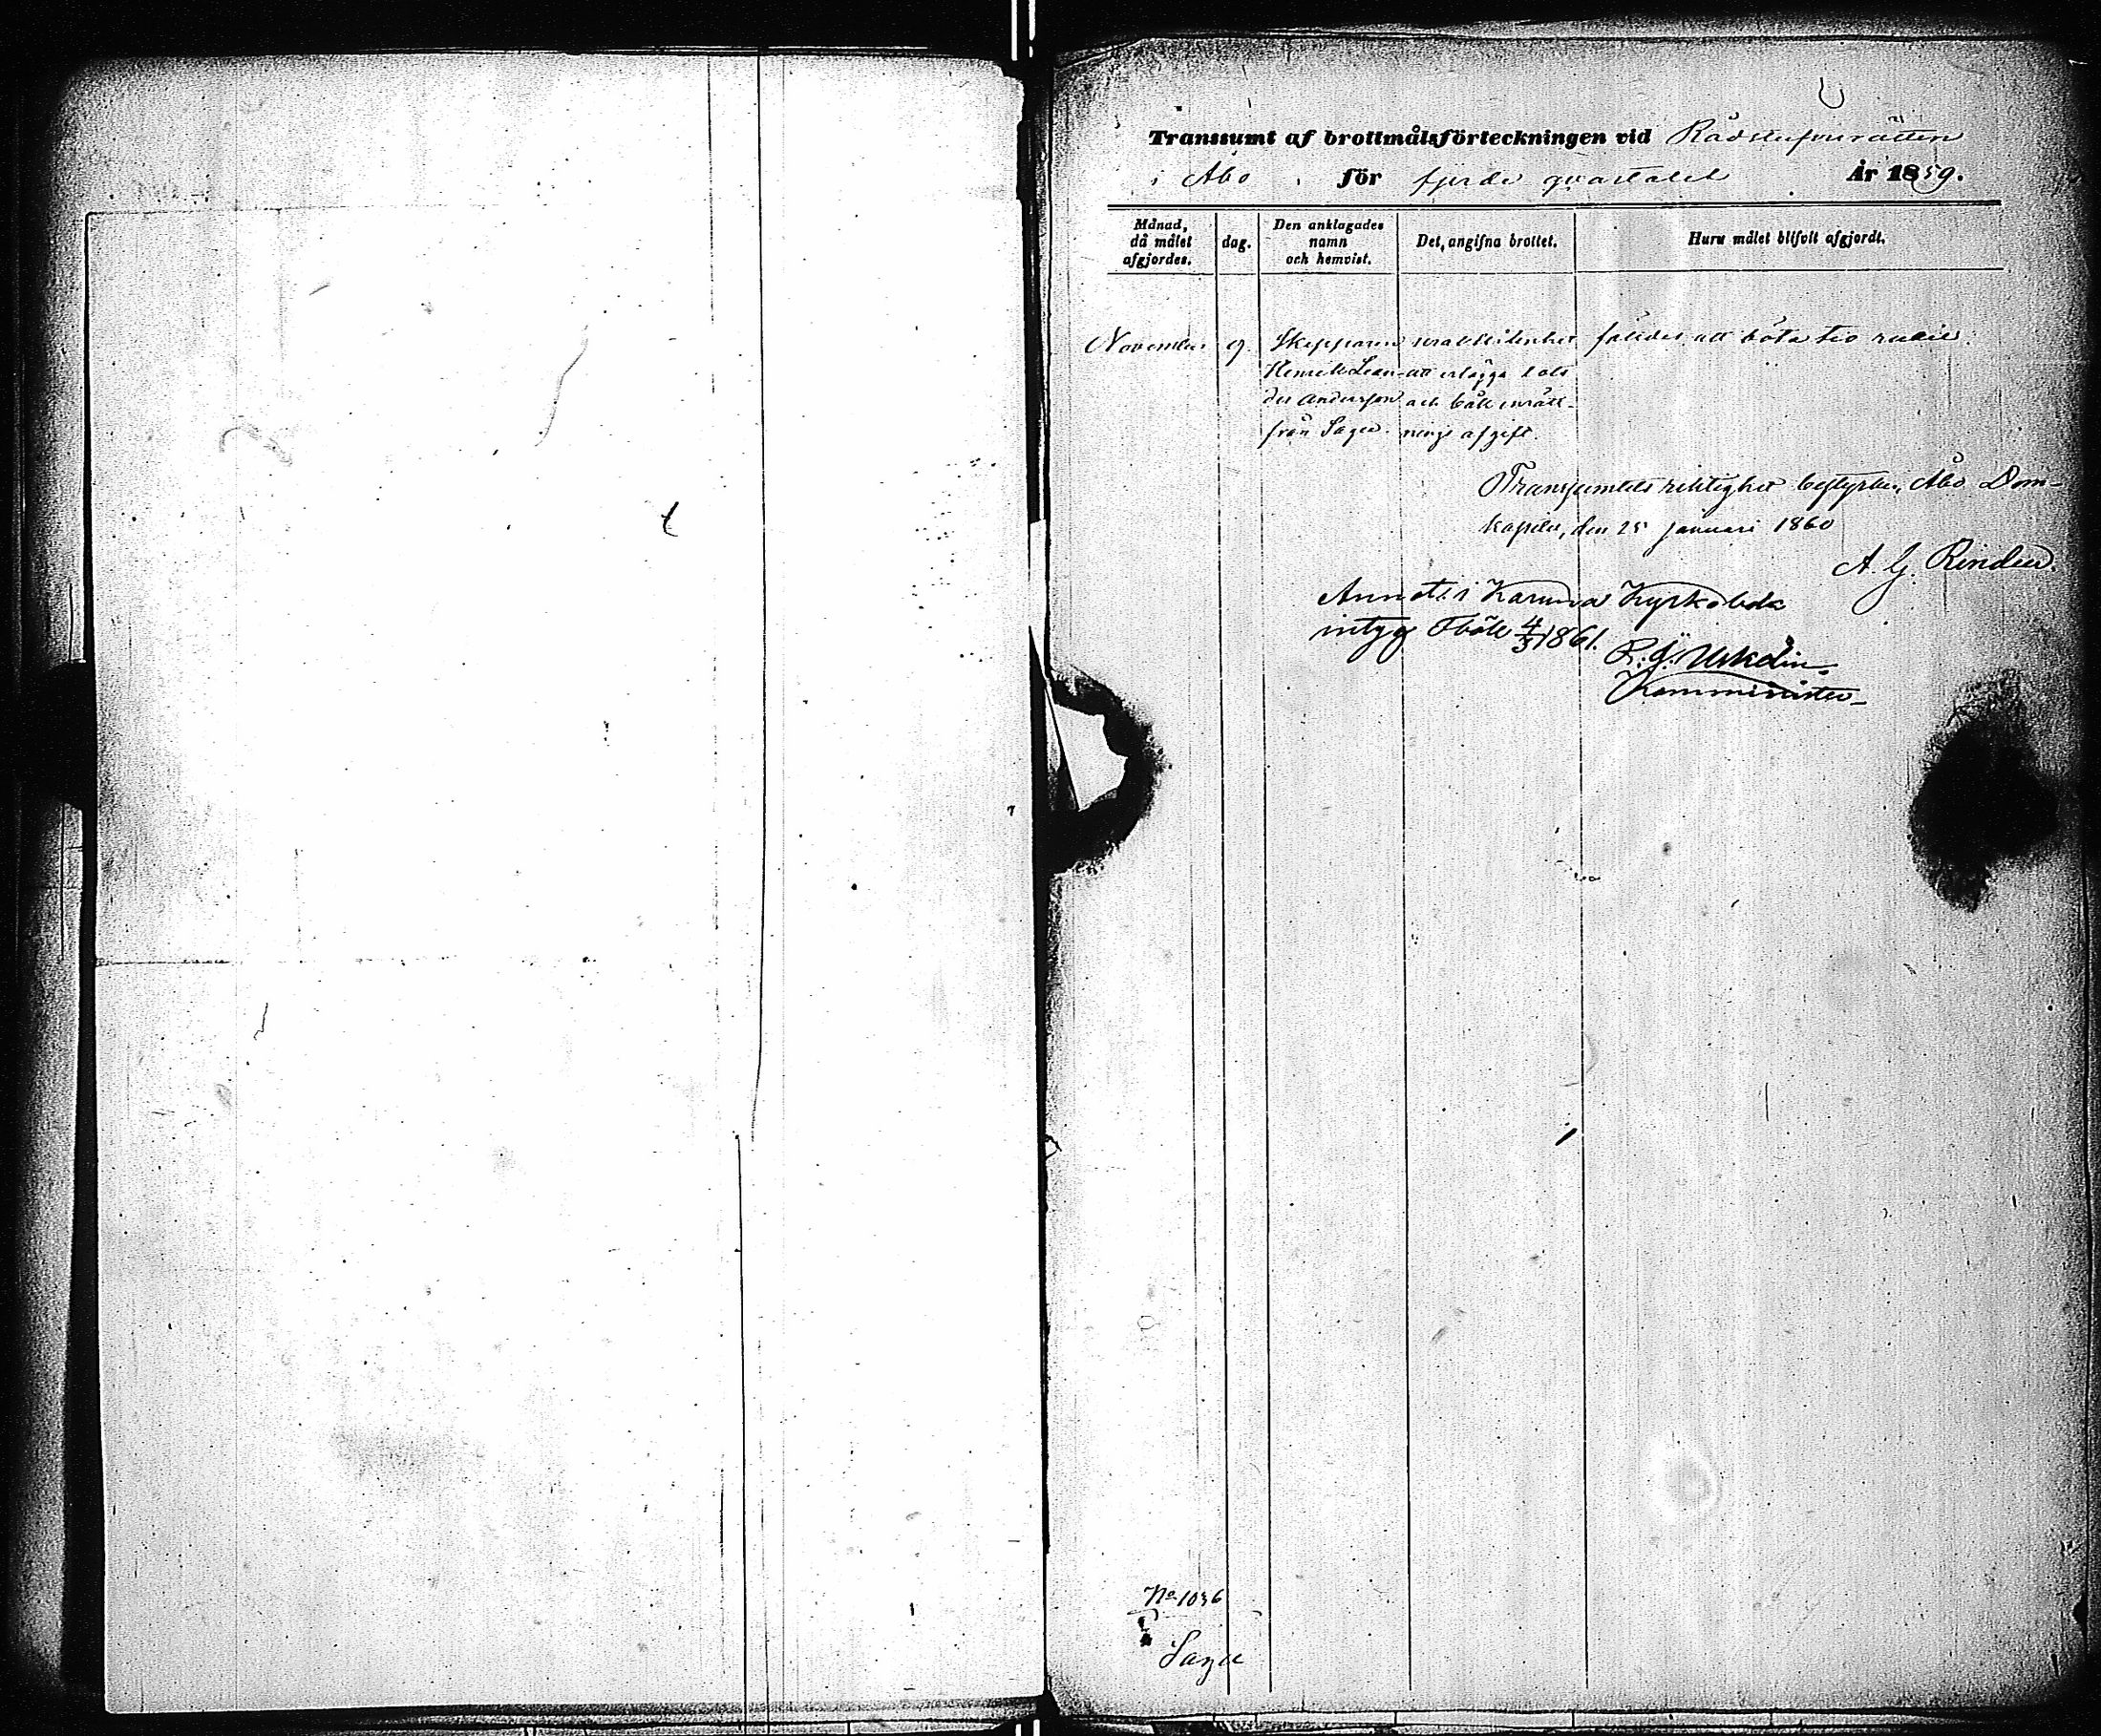 Transsumt af brottmålsförteckningen vid Rådstufvurätten
i Åbo för fjerde qvartalet År 1859.
Månad, då målet afgjordes.
dag.
Den anklagades namn och hemvist.
Det angifna brottet.
Huru målet blifvit afgjordt.
November
9.
Skepparen
Henrik Lean-
der Andersson
från Sagu.
uraktlåtenhet
att erlägga lots
och båk inrätt-
nings afgift.
fälldes att böta tio rubel.
Transsumtets riktighet bestyrker, Åbo Dom-
kapitel, den 25 Januari 1860
A. G. Rinden.
Annot. i Karuna Kyrkobok
intyg 4/3 1861.
Komminister
No 1036
Sagu